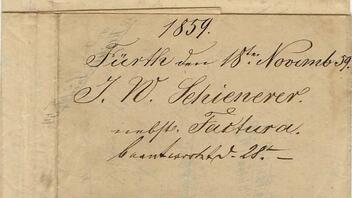 1859.
Fürth den 18ten Novemb 59.
J. W. Schienerer.
nebst Factura.
beantwortet d. 28t. —